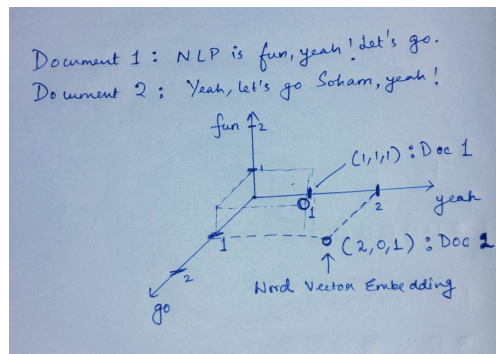 Document 1: NLP is fun, yeah! Let's go.
Document 2: Yeah, let's go Soham, yeah!
fun
2
1
(1,1,1): Doc 1
1
2
yeah
1
(2,0,1): Doc 2
2
Word Vector Embedding
go